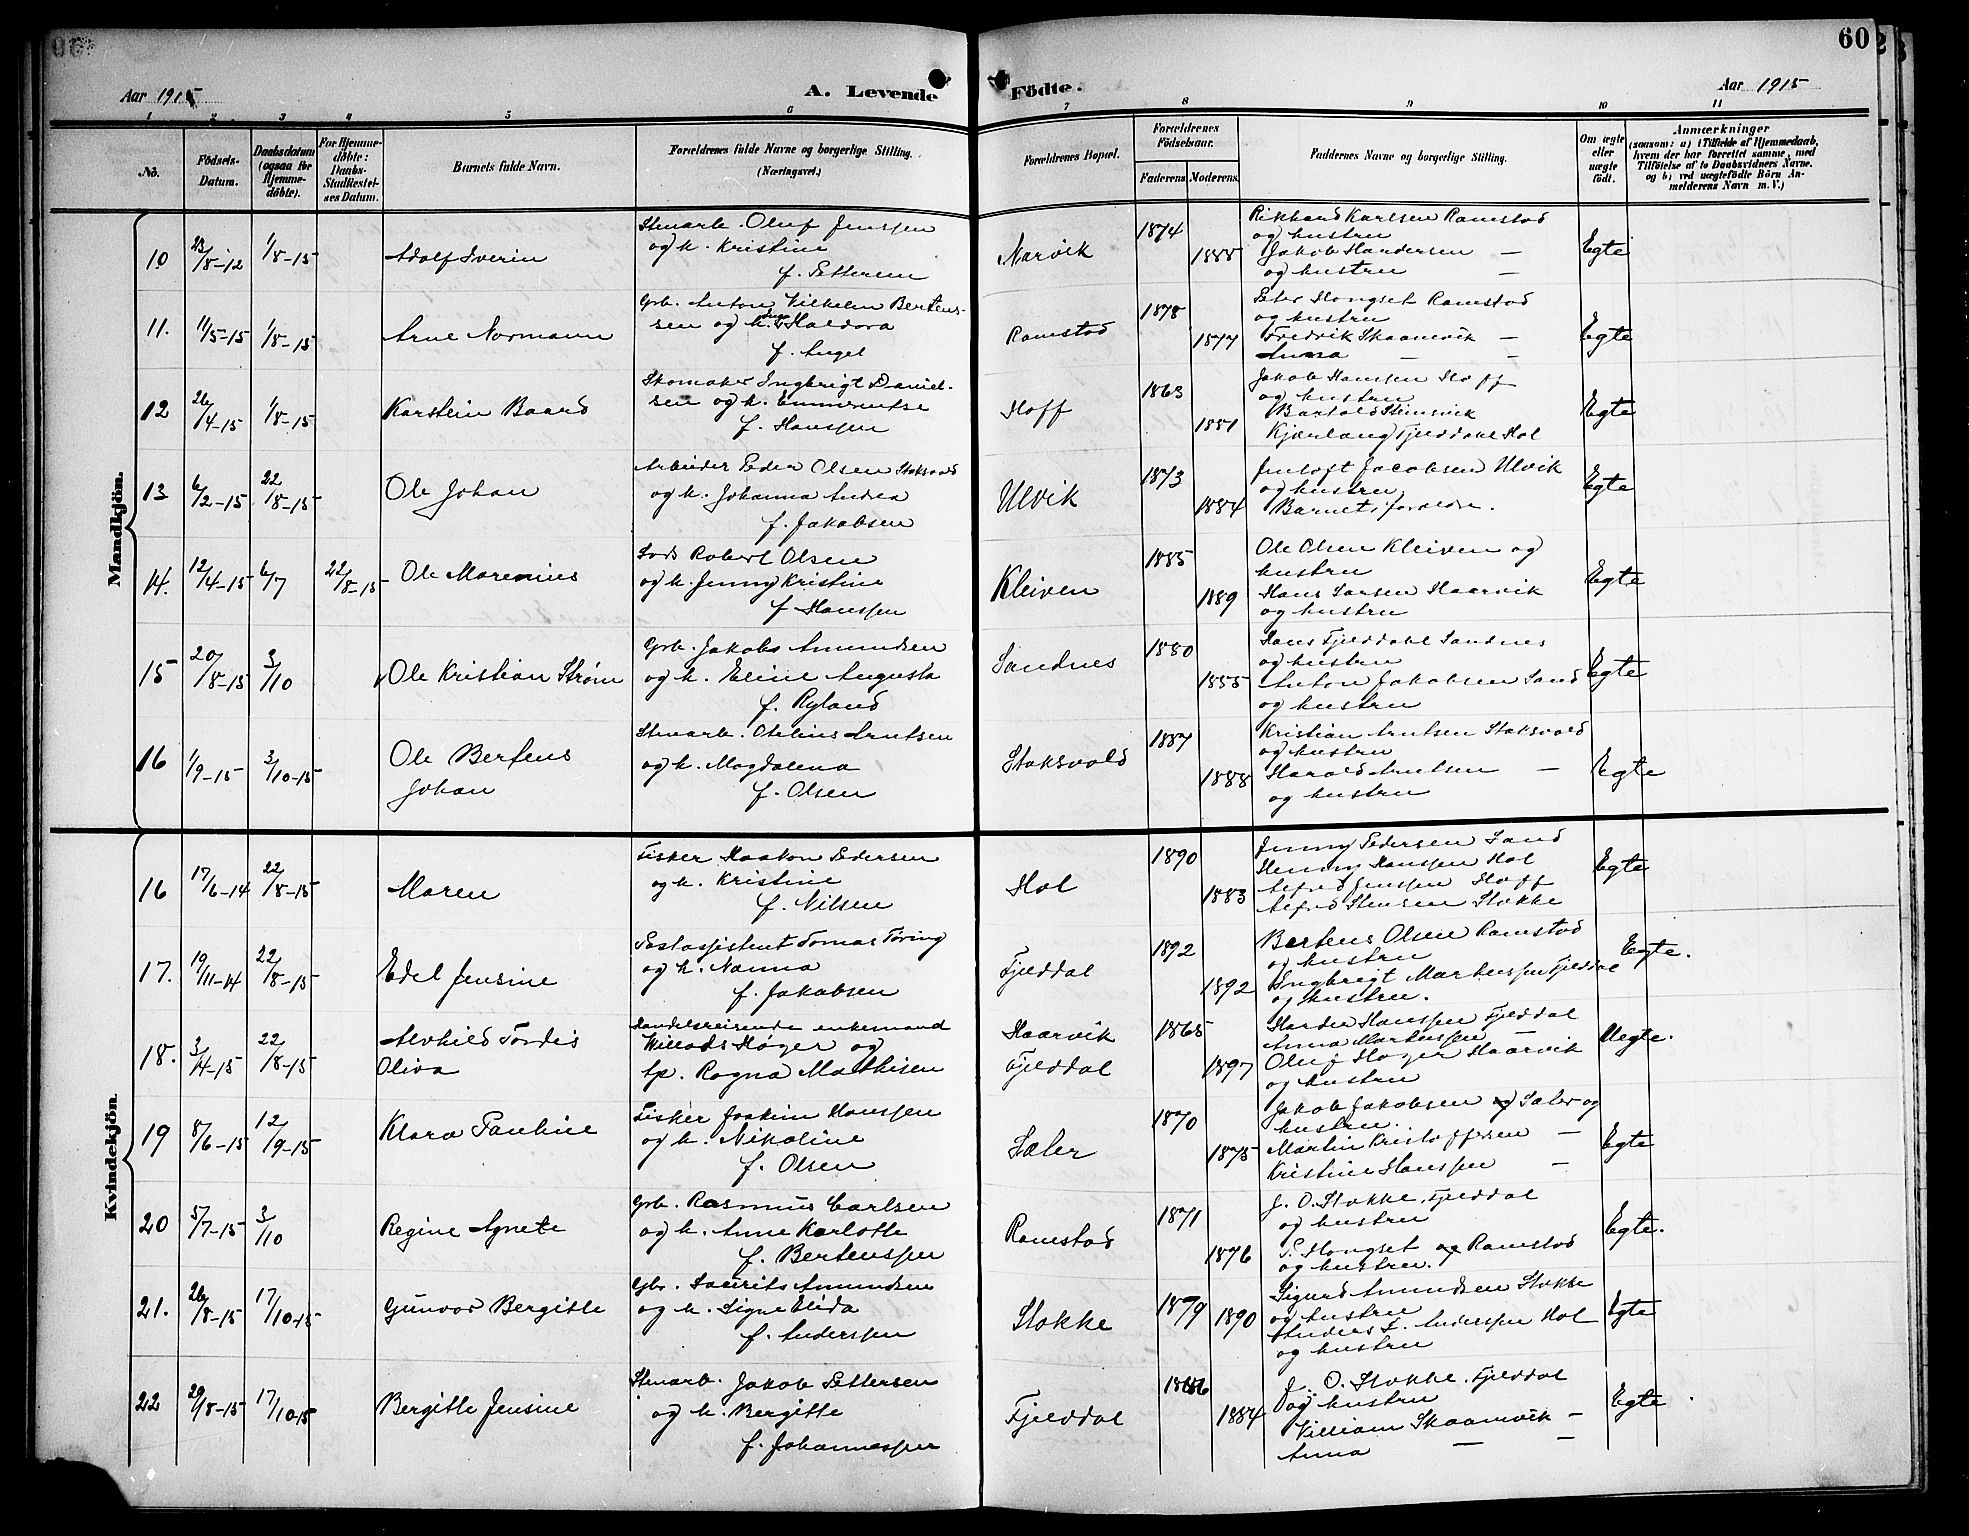 60
Aar 1915
A. Levende
Födte.
Aar 1915
1 2 3 4 5 6 7 8 9 10 11
No.
Födsels-
Datum.
Daabsdatum
(ogsaa for
Hjemme-
döbte).
For Hjemme-
döbte:
Daabs-
Stadfæstel-
ses Datum.
Barnets fulde Navn.
Forældrenes fulde Navne og borgerlige Stilling.
(Næringsvei.)
Forældrenes Bopæl.
Forældrenes
Födselsaar.
Faderens Moderens.
Faddernes Navne og borgerlige Stilling.
Om ægte
eller
uægte
født.
Anmærkninger
(saasom: a) i Tilfælde af Hjemmedaab,
hvem der har forrettet samme, med
Tilföielse af to Daabsvidners Navne.
og b) ved uægtefödte Börn An-
melderens Navn m. V.)
Mandkjön.
10 23/8-12 1/8-15 Adolf Sverin
Stenarb. Oluf Jenssen
og h. Kristine
f. Pettersen
Narvik 1874 1888
Rikhard Karlsen Ramstad
og hustru
Jakob Handersen —
og hustru —
Egte
11. 11/5-15 1/8-15 Arne Normann
Grb. Anton Vilhelm Bertens-
sen og h. Haldora
f. Angel
Ramstad 1878 1877
Peter Hongset Ramstad
og hustru
Fredrik Skaamvik —
Anna — —
Egte
12 26/4-15 1/8-15 Karstein Baard
Skomaker Ingbrigt Daniel-
sen og h. Emmerentse
f. Hanssen
Hoff 1863 1881
Jakob Hanssen Hoff
og hustru
Bartold Steinsvik
Kjærlaug Fjelddahl Hol
Egte
13 6/2-15 22/8-15 Ole Johan
Arbeider Peder Olsen Stoksvold
og h. Johanna Andrea
f. Jakobsen
Ulvik 1873 1884
Jentoft Jacobsen Ulvik
og hustru
Barnets forældre.
Egte
14. 12/4-15 6/7 22/8-15 Ole Marenius
Lods Robert Olsen
og h. Jenny Kristine
f Hanssen
Kleiven 1885 1889
Ole Olsen Kleiven og
hustru
Hans Larsen Haarvik
og hustru
Egte
15 20/8-15 3/10 Ole Kristian Strøm
Grb. Jakob Amundsen
og h. Eline Augusta
f. Ryland
Sandnes 1880 1885
Hans Fjelddahl Sandnes
og hustru
Anton Jakobsen Sand
og hustru
Egte
16 1/9-15 3/10-15 Ole Bertens
Johan
Stenarb. Otelius Arntsen
og h. Magdalena
f. Olsen
Stoksvold 1887 1888
Kristian Arntsen Stoksvold
og hustru
Harald Arntsen —
og hustru
Egte
Kvindekjön.
16 17/6-14 22/8-15 Maren
Fisker Haakon Pedersen
og h. Kristine
f. Nilsen
Hol 1890 1883
Jenny Pedersen Sand
Henny Hanssen Hol
Alfred Jenssen Hoff
Alfred Stensen Stokke
Egte
17. 19/11-14 22/8-15 Edel Jensine
Postassistent Tomas Töring
og h. Nanna
f. Jakobsen
Fjelddal 1892 1892
Bertens Olsen Ramstad
og hustru
Ingbrigt Markussen Fjelddal
og hustru.
Egte.
18. 3/4-15 22/8-15 Alvhild Tordis
Oliva
Handelsreisende enkemand
Willads Høger og
tp. Ragna Mathisen
Haarvik
Fjelddal
1865 1897
Harder Hanssen Fjelddal
Anna Markussen —
Oluf Høger Haarvik
og hustru
Uegte.
19 8/6-15 12/9-15 Klara Pauline
Fisker Joakim Hanssen
og h. Nikoline
f. Olsen
Sæler 1870 1875
Jakob Jakobsen Sæler og
hustru.
Martin Kristoffersen —
Kristine Hanssen —
Egte
20 5/7-15 3/10 Regine Agnete
Grb. Rasmus Carlsen
og h. Anne Karlotte
f. Bertenssen
Ramstad 1871 1876
J. O. Stokke, Fjelddal
og hustru
P. Hongset Ramstad
og hustru.
Egte.
21. 26/8-15 17/10-15 Gunvor Bergitte
Gbr. Laurits Amundsen
og h. Signe Elida
f. Anderssen
Stokke 1879 1890
Sigurd Amundsen Stokke
og hustru
Anders L. Anderssen Hol
og hustru
Egte
22 29/8-15 17/10-15 Bergitte Jensine
Stenarb. Jakob Pettersen
og h. Bergitte
f. Johannessen
Fjelddal 1884
J. O. Stokke, Fjelddal
og hustru
Villiam Skaamvik —
Anna — —
Egte